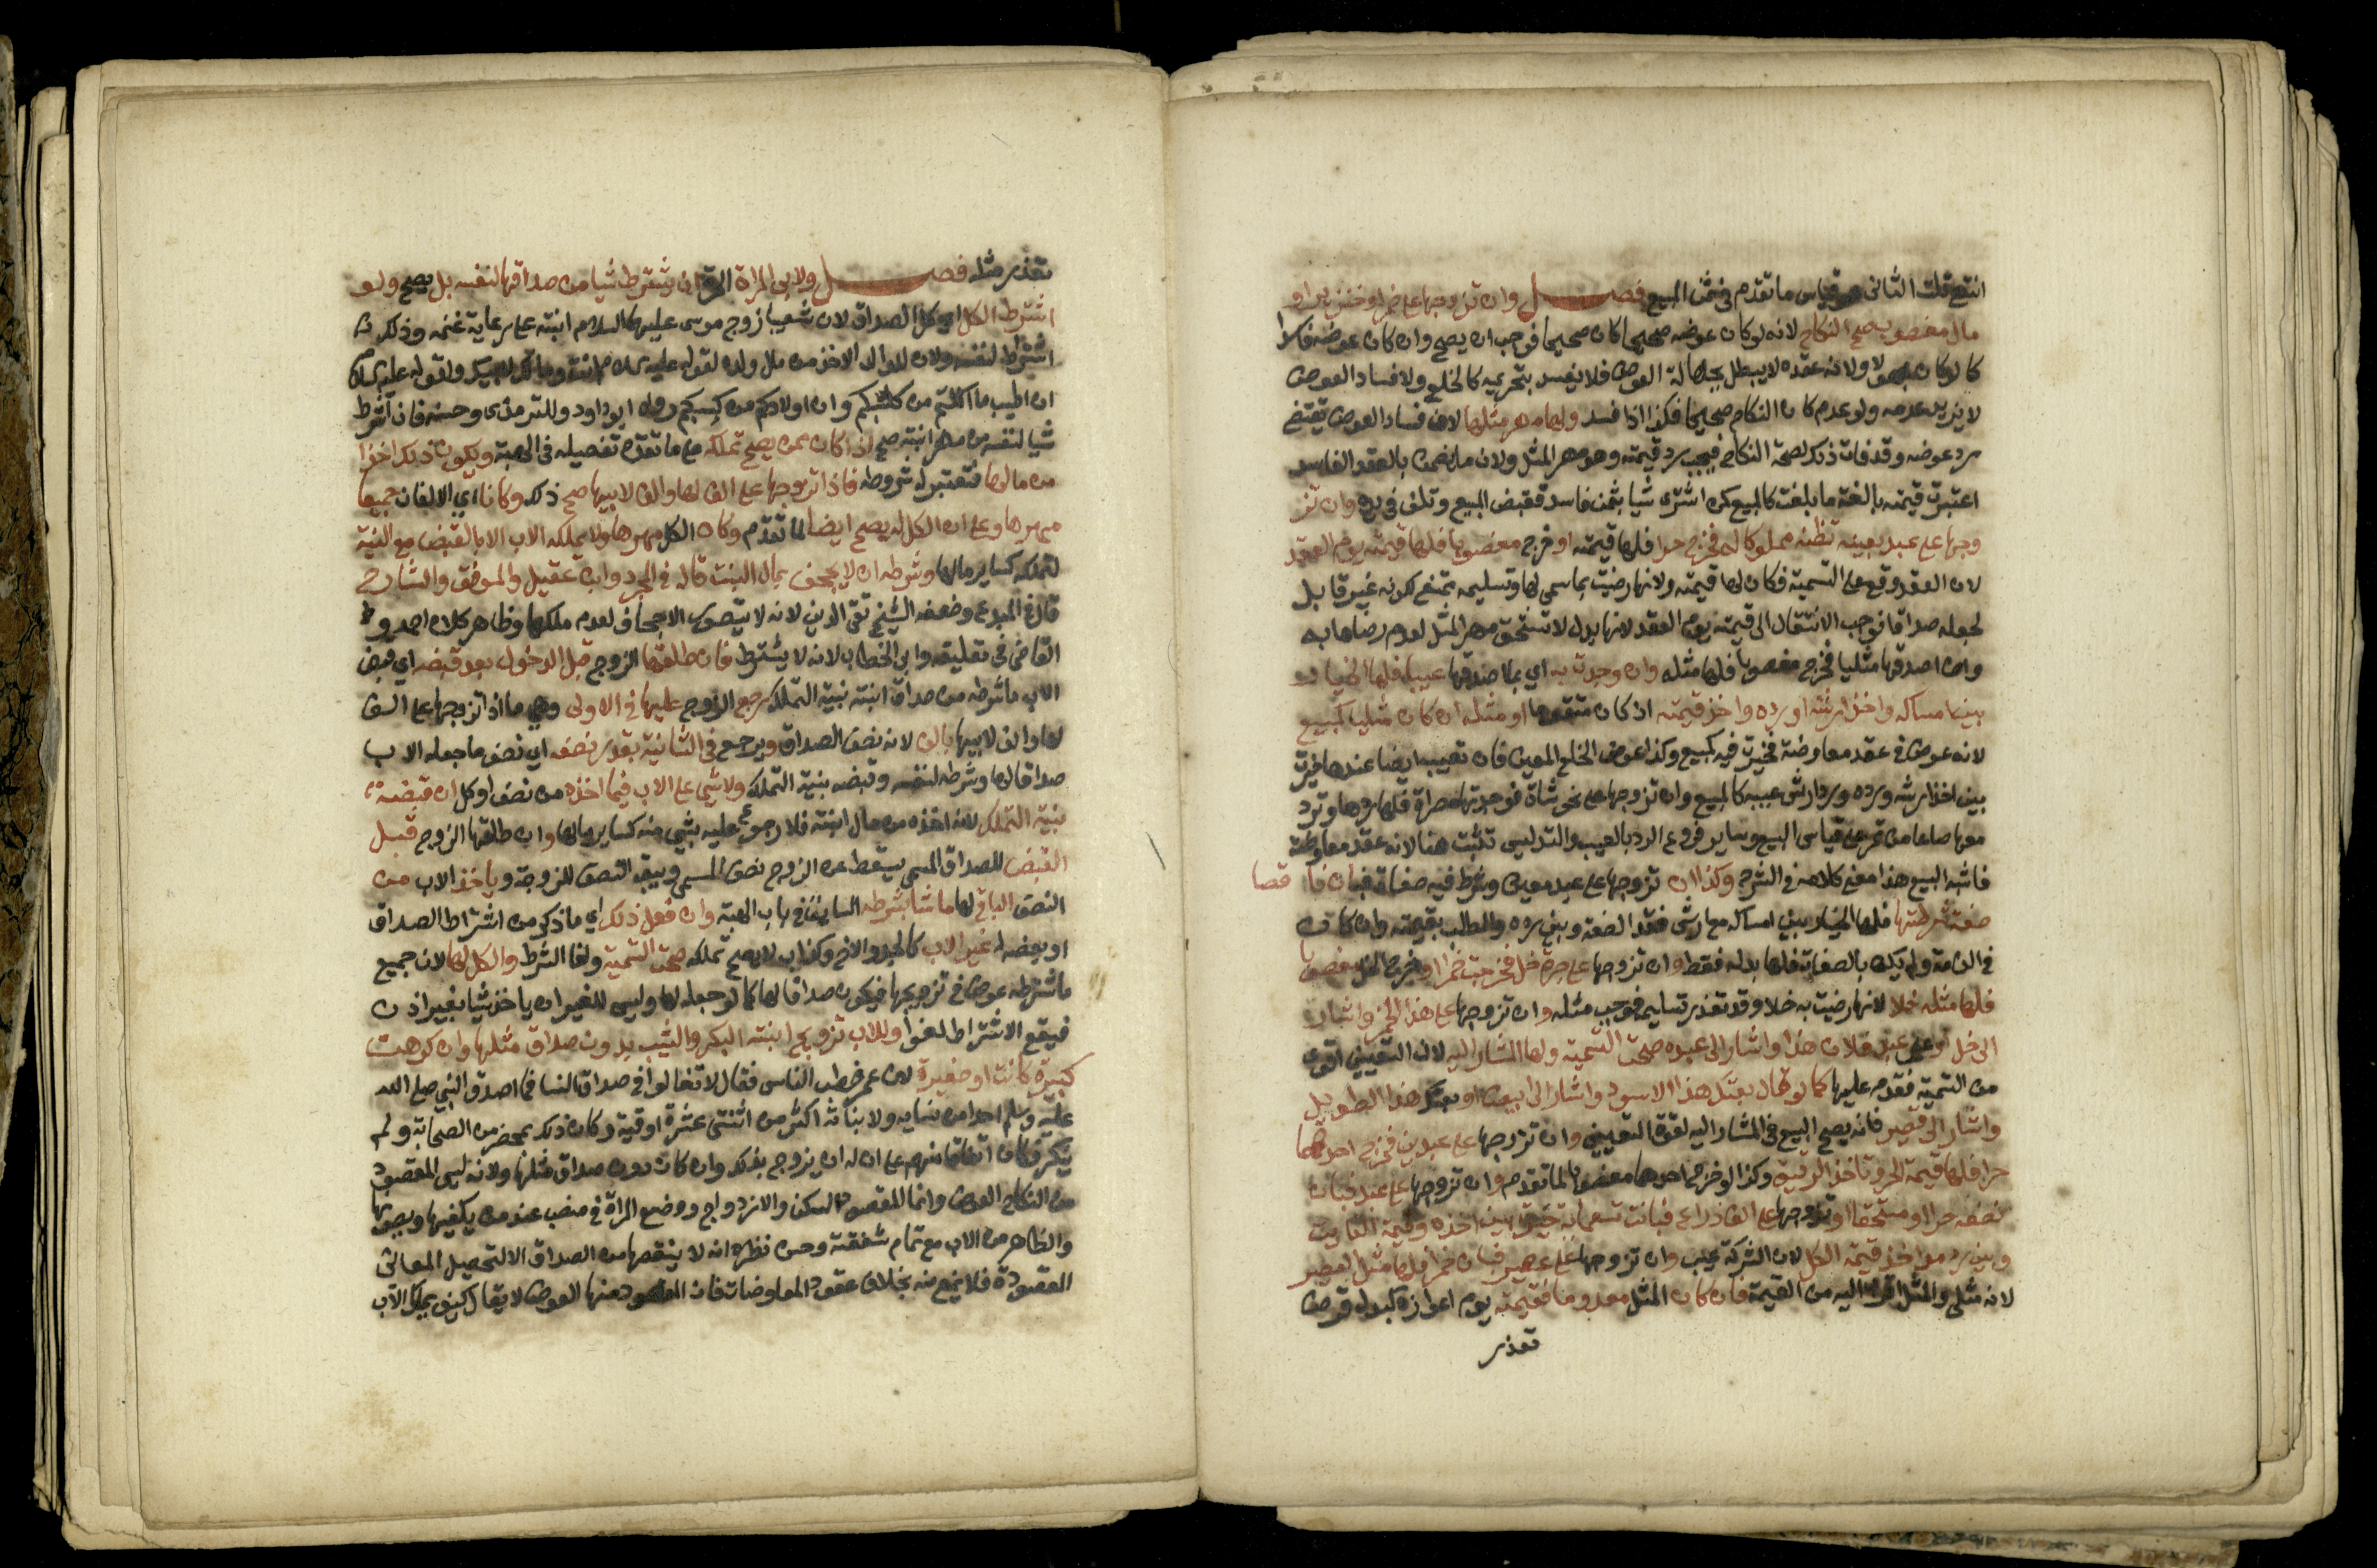 انتهى قلت الثاني هو قياس ما تقدم في ثمن المبيع فصل وان تزوجها على خمر او خنزير او
مال مغصوب يصح النكاح لانه لو كان عوضه صحيحا كان صحيحا فوجب ان يصح وان كان عوضه فاسدا
كما لو كان مجهولا ولانه عقده لا يبطل بجهالة العوض فلا يفسد بتحريمه كالخلع ولا فساد العوض
لا يزيد عدمه ولو عدم كان النكاح صحيحا فكذا اذا فسد ولها مهر مثلها لان فساد العوض يقتضي
رد عوضه وقد فات ذلك لصحة النكاح فيجب رد قيمته وهو مهر المثل ولان ما يضمن بالعقد الفاسد
اعتبرت قيمته بالغة ما بلغت كالمبيع كمن اشترى شيا بثمن فاسد فقبض المبيع وتلف في يده وان تز
وجها على عبد بعينه تظنه مملوكا له فخرج حرا فلها قيمته او خرج مغصوبا فلها قيمته يوم العقد
لان العقد وقع على التسمية فكان لها قيمته ولانها رضيت بما سمي لها وتسليمه ممتنع لكونه غير قابل
لجعله صداقا فوجب الانتقال الى قيمته يوم العقد لانها بدله لا تستحق مهر المثل لعدم رضاها به
وان اصدقها مثليا فخرج مغصوبا فلها مثله وان وجدت به اي بما اصدقها عيبا فلها الخيار
بين امساكه واخذ ارشه او رده واخذ قيمته ان كان متقوما او مثله ان كان مثليا كمبيع
لانه عوض في عقد معاوضة فخيرت فيه كمبيع وكذا عوض الخلع المعين فان تعيب ايضا عندها خيرت
بين اخذ ارشه ورده ورد ارش عيبه كالمبيع وان تزوجها على نحو شاة فوجدتها مصراة فلها ردها وترد
معها صاعا من تمر على قياس البيع وساير فروع الرد بالعيب والتدليس تثبت هنا لانه عقد معاوضة
فاشبه البيع هذا معنى كلامه في الشرح وكذا ان تزوجها على عبد معين وشرط فيه صفات فبان ناقصا
صفة شرطتها فلها الخيار بين امساكه مع ارش فقد الصفة وبين رده والطلب بقيمته وان كان
في الذمة ولم يكن بالصفات فلها بدله فقط وان تزوجها على جرة خل فخرجت خمرا او خرج الخل مغصوبا
فلها مثله خلا لانها رضيت به خلا وقد تعذر تسليمه فوجب مثله وان تزوجها على هذا الخمر واشار
الى خل او على عبد فلان هذا واشار الى عبده صحت التسمية ولها المشار اليه لان التعيين اقوى
من التسمية فقدم عليها كما لو قال بعتك هذا الاسود واشار الى ابيض او بعتك هذا الطويل
واشار الى قصير فانه يصح البيع في المشار اليه لقوة التعيين وان تزوجها على عبدين فخرج احدهما
حرا فلها قيمة الحر وتاخذ الرقيق وكذا لو خرج احدهما مغصوبا لما تقدم وان تزوجها على عبد فبان
نصفه حرا او مستحقا او تزوجها على الف ذراع فبانت تسعماية خيرت بين اخذه وقيمة الفايت
وبين رده واخذ قيمة الكل لان الشركة عيب وان تزوجها على عصير فبان خمرا فلها مثل العصير
لانه مثلي والمثل اقرب اليه من القيمة فان كان المثل معدوما فقيمته يوم اعوازه كبدل قرض
تعذر
تعذر مثله فصل ولابي المراة الحرة ان يشترط شيا من صداقها لنفسه بل يصح ولو
اشترط الكل اي كل الصداق لان شعيبا زوج موسى عليهما السلام ابنته على رعاية غنمه وذلك
اشترط لنفسه ولان للوالد الاخذ من مال ولده لقوله عليه السلام انت ومالك لابيك ولقوله عليه السلام
ان اطيب ما اكلتم من كسبكم وان اولادكم من كسبكم رواه ابو داود والترمذي وحسنه فان شرط
شيا لنفسه من مهر ابنته صح اذا كان ممن يصح تملكه مع ما تقدم تفصيله في الهبة ويكون ذلك اخذا
من مالها فتعتبر له شروطه فاذا تزوجها على الف لها والف لابيها صح ذلك وكانا اي الالفان جميعا
مهرها وعلى ان الكل له يصح ايضا لما تقدم وكان الكل مهرها ولا يملكه الاب الا بالقبض مع النية
لتملكه كساير مالها وشرطه ان لا يجحف بمال البنت قاله في المجرد وابن عقيل والموفق والشارح
قال في المبدع وضعفه الشيخ تقي الدين لانه لا يتصور الاجحاف لعدم ملكها وظاهر كلام احمد و
القاضي في تعليقه وابي الخطاب لانه لا يشترط فان طلقها الزوج قبل الدخول بعد قبضه اي قبض
الاب ما شرطه من صداق ابنته بنية التملك رجع الزوج عليها في الاولى وهي ما اذا تزوجها على الف
لها والف لابيها بالف لانه نصف الصداق ويرجع في الثانية بقدر نصفه اي نصف ما جعله الاب
صداقا لها وشرطه لنفسه وقبضه بنية التملك ولا شي على الاب فيما اخذه من نصف او كل ان قبضه
بنية التملك لانه اخذه من مال ابنته فلا رجوع عليه بشي منه كساير مالها وان طلقها الزوج قبل
القبض للصداق المسمى سقط عن الزوج نصف المسمى ويبقى النصف للزوجة وياخذ الاب من
النصف الباقي لها ما شا بشرطه السابق في باب الهبة وان فعل ذلك اي ما ذكر من اشتراط الصداق
او بعضه له غير الاب كالجد والاخ وكذا اب لا يصح تملكه صحت التسمية ولغا الشرط والكل لها لان جميع
ما شرطه عوض في تزويجها فيكون صداقا لها كما لو جعله لها وليس للغير ان ياخذ شيا بغير اذن
فيقع الاشتراط لغوا وللاب تزويج ابنته البكر والثيب بدون صداق مثلها وان كرهت
كبيرة كانت او صغيرة لان عمر خطب الناس فقال لا تغالوا في صداق النسا فما اصدق النبي صلى الله
عليه وسلم احدا من نسايه ولا بناته اكثر من اثنتي عشرة اوقية وكان ذلك بمحضر من الصحابة ولم
ينكر فكان اتفاقا منهم على ان له ان يزوج بذلك وان كان بدون صداق مثلها ولانه ليس المقصود
من النكاح العوض وانما المقصود السكن والازدواج ووضع المراة في منصب عند من يكفيها ويصونها
والظاهر من الاب مع تمام شفقته وحسن نظره انه لا ينقصها من الصداق الا لتحصيل المعاني
المقصودة فلا يمنع منه بخلاف عقود المعاوضات فان المقصود منها العوض لا يقال كيف يملك الاب